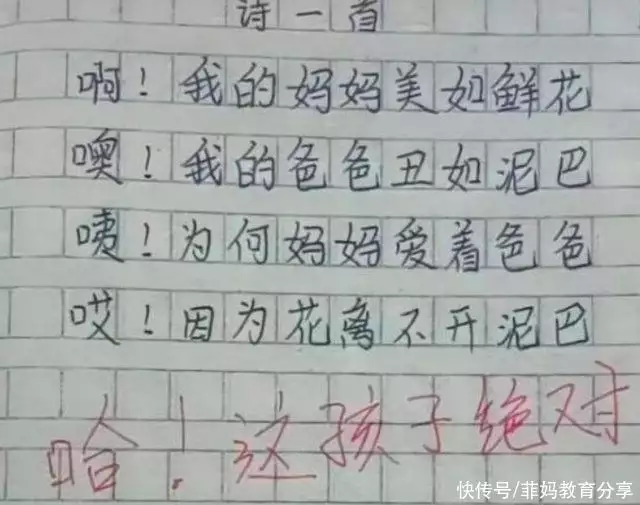 诗一首
啊！我的妈妈美如鲜花
噢！我的爸爸丑如泥巴
咦！为何妈妈爱着爸爸
哎！因为花离不开泥巴
哈！这孩子绝对
快传号/菲妈教育分享